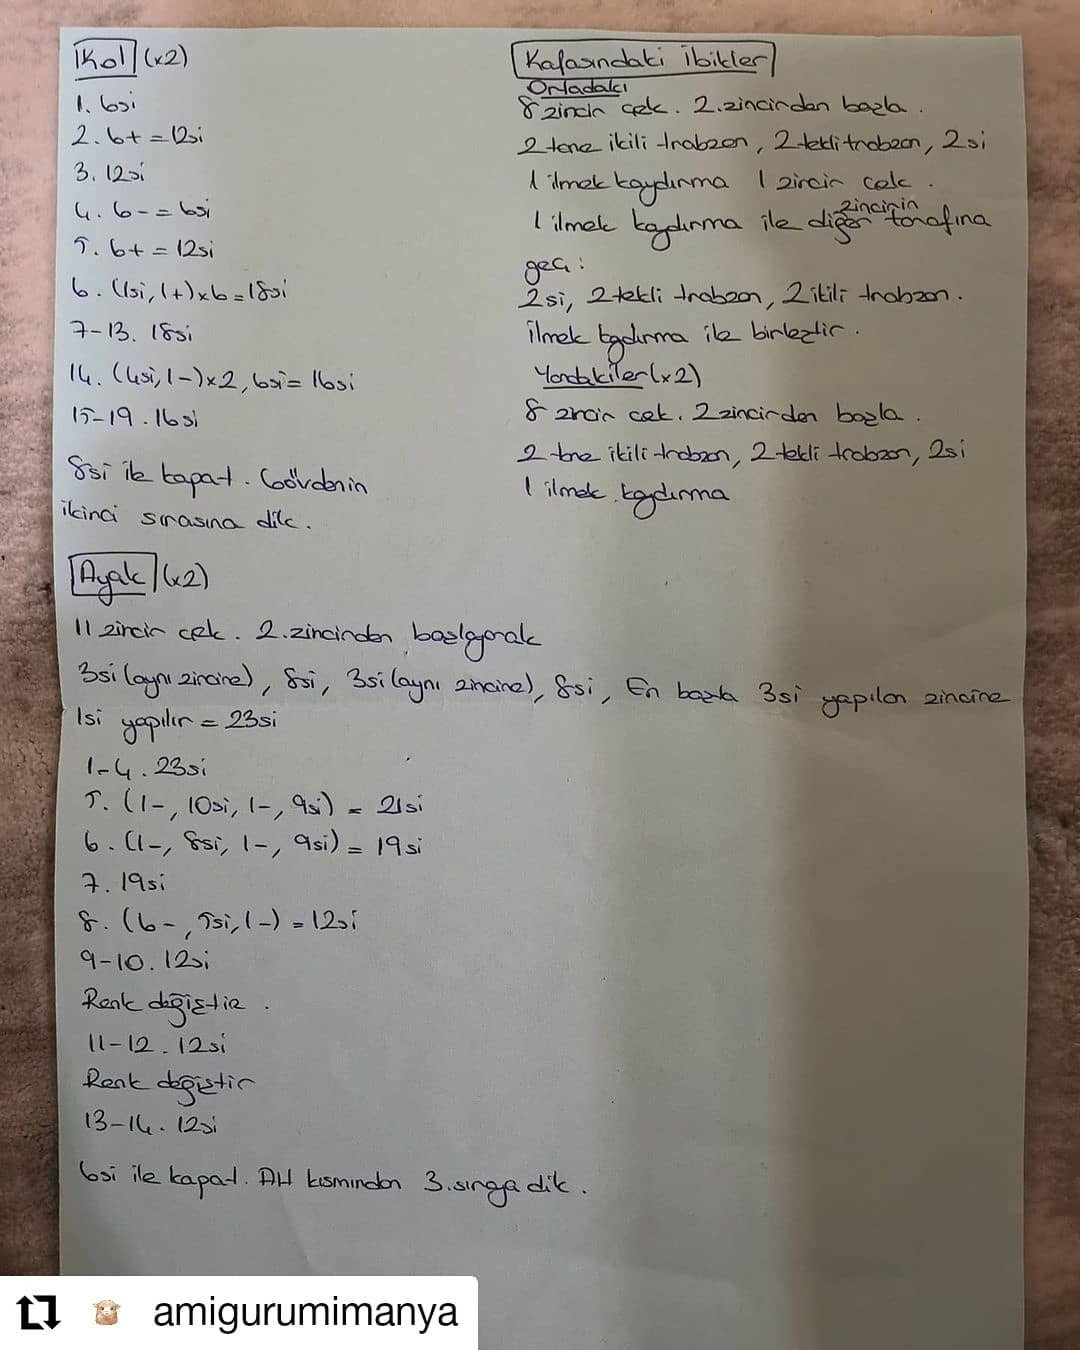 Kol (x2)
1. 6si
2. 6+ = 12si
3. 12si
4. 6- = 6si
5. 6+ = 12si
6. (1si, 1+)x6=18si
7-13. 18si
14. (4si, 1-)x2, 6si= 16si
15-19. 16si
8si ile kapat. Gövdenin
ikinci sırasına dik.
Kafasındaki İbikler
Ortadaki
8 zincir çek. 2.zincirden başla.
2 tane ikili trabzan, 2 tekli trabzan, 2si
1 ilmek kaydırma 1 zincir çek.
1 ilmek kaydırma ile diğer zincirin tarafına
geç:
2si, 2 tekli trabzan, 2 ikili trabzan.
İlmek kaydırma ile birleştir.
Yandakiler (x2)
8 zincir çek. 2 zincirden başla.
2 tane ikili trabzan, 2 tekli trabzan, 2si
1 ilmek kaydırma
Ayak (x2)
11 zincir çek. 2.zincirden başlayarak
3si (aynı zincire), 8si, 3si (aynı zincire), 8si, En başta 3si yapılan zincire
1si yapılır = 23si
1-4. 23si
5. (1-, 10si, 1-, 9si) = 21si
6. (1-, 8si, 1-, 9si) = 19si
7. 19si
8. (6-, 5si, 1-) = 12si
9-10. 12si
Renk değiştir.
11-12. 12si
Renk değiştir
13-14. 12si
6si ile kapat. Alt kısmından 3.sıraya dik.
amigurumimanya